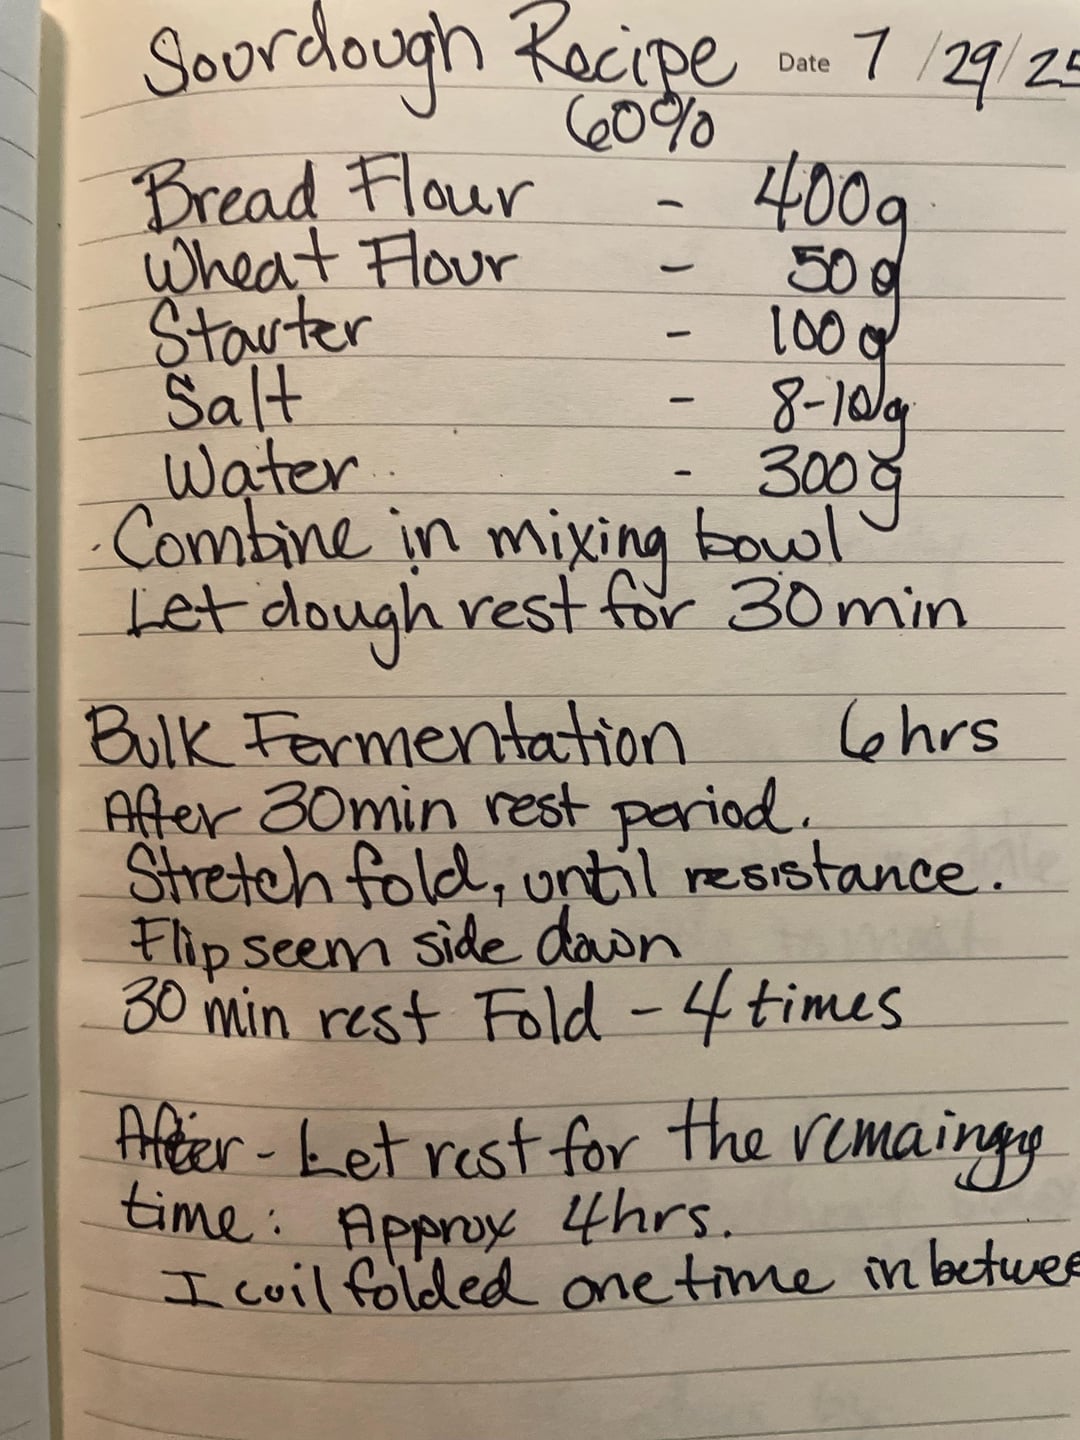 Sourdough Recipe Date 7/29/25
60%
Bread Flour - 400g
Wheat Flour - 50g
Starter - 100g
Salt - 8-10g
Water - 300g
Combine in mixing bowl
Let dough rest for 30 min
Bulk Fermentation 6 hrs
After 30 min rest period.
Stretch fold, until resistance.
Flip seem side down
30 min rest Fold - 4 times
After - Let rest for the remaingng
time: Approx 4hrs.
I coil folded one time in betwee